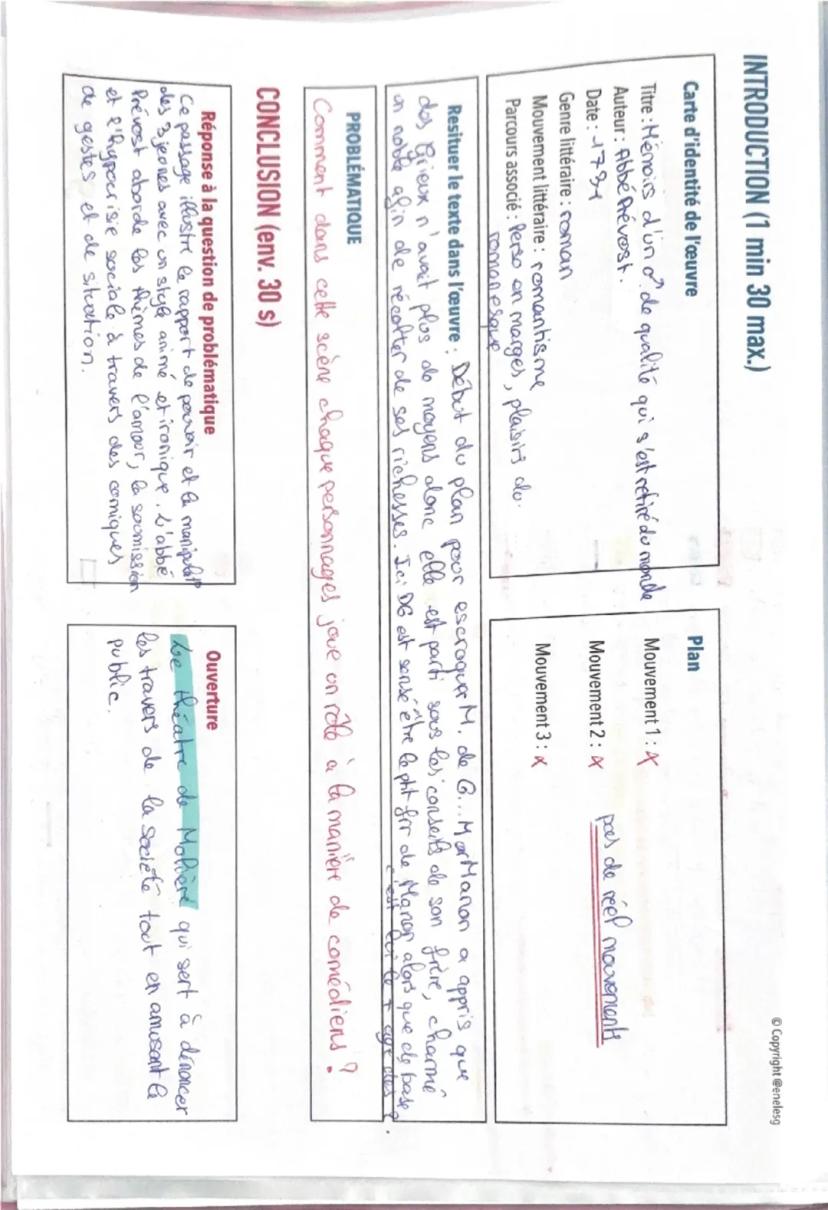 © Copyright @enelesg
INTRODUCTION (1 min 30 max.)
Carte d'identité de l'œuvre
Titre : Mémoirs d'un ♂ de qualité qui s'est retiré du monde
Auteur : Abbé Prévost.
Date : 1731
Genre littéraire : roman
Mouvement littéraire : romantisme
Parcours associé : Perso en marges, plaisirs du
romanesque
Plan
Mouvement 1 : x
Mouvement 2 : x
pas de réel mouvements
Mouvement 3 : x
Resituer le texte dans l'œuvre : Début du plan pour escroquer M. de G...M or Manon a appris que
des Grieux n'avait plus de moyens donc elle est parti sous les conseils de son frère, charmé
un noble afin de récolter de ses richesses. Ici DG est sensé être le ptit frr de Manon alors que de base
c'est lui le + agé des 2.
PROBLÉMATIQUE
Comment dans cette scène chaque personnages joue un rôle à la manière de comédiens ?
CONCLUSION (env. 30 s)
Réponse à la question de problématique
Ce passage illustre le rapport de pouvoir et la manipulat°
des 3 jeunes avec un style animé et ironique. L'abbé
Prévost aborde les thèmes de l'amour, la soumission
et l'hypocrisie sociale à travers des comiques
de gestes et de situation.
Ouverture
Le théatre de Molière qui sert à dénoncer
les travers de la société tout en amusant le
public.